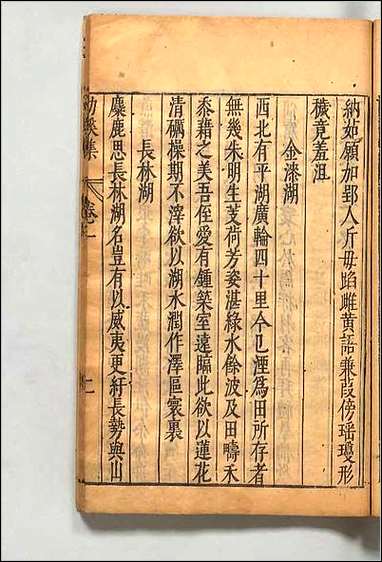 納茹願加郢人斤毋蹈雌黄語兼葭傍瑶瓊形
穢竟羞沮
金漆湖
西北有平湖廣輪四十里今已湮爲田所存者
無幾朱明生芰荷芳姿湛綠水餘波及田疇禾
黍藉之美吾侄愛有鍾築室遠臨此欲以蓮花
清礪操期不滓欲以湖水潤作澤區寰裏
長林湖
麋鹿思長林湖名豈有以威夷更紆長勢與山
集 卷一 二